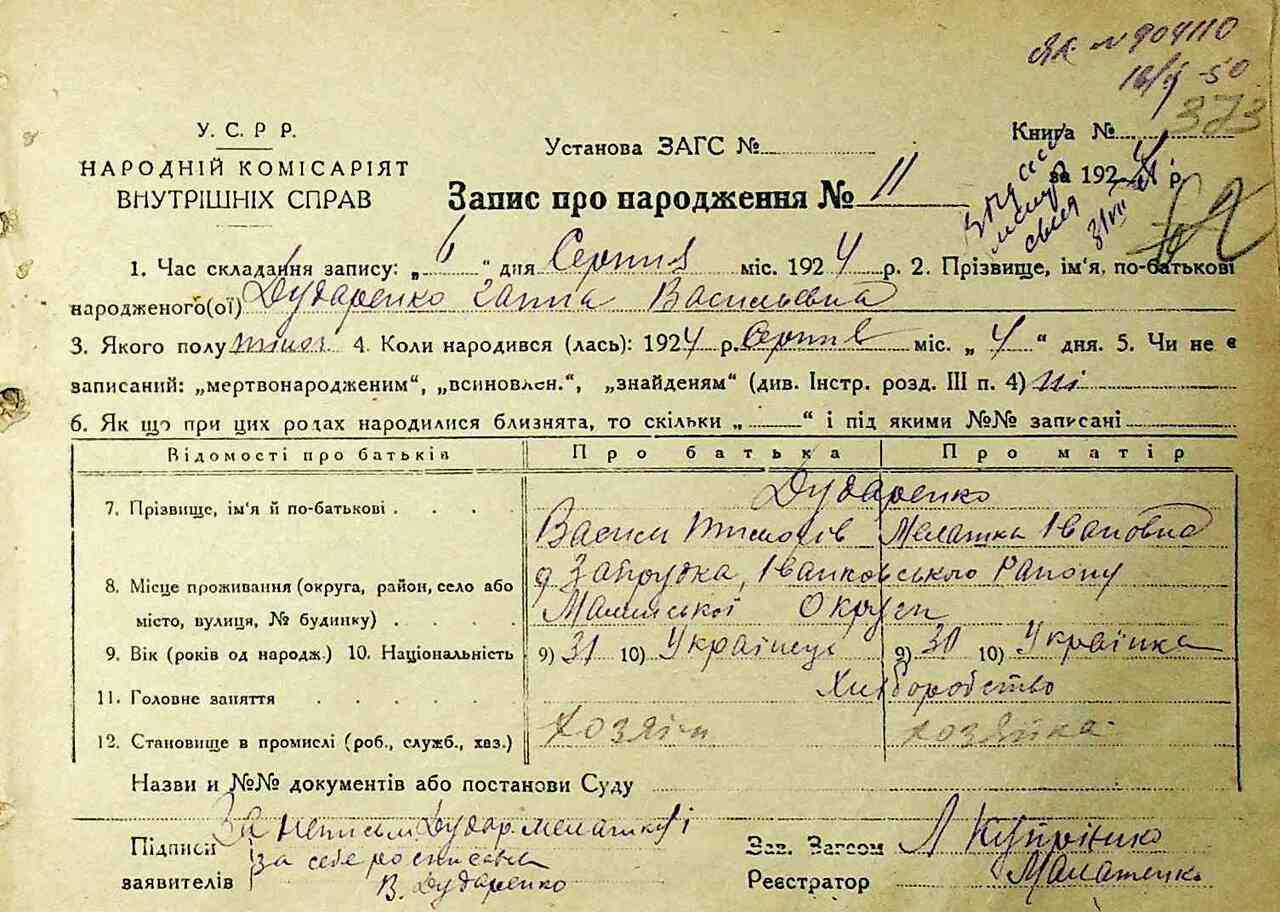 № 904110
-50
373
У. С. Р Р.
НАРОДНІЙ КОМІСАРІЯТ
ВНУТРІШНІХ СПРАВ
Установа ЗАГС №
Книга №
за 1924 р.
Запис про народження № 11
1. Час складання запису: „6“ дня Серпня міс. 1924 р. 2. Прізвище, ім'я, по-батькові
народженого(ої) Дударенко Ганна Васильевна
3. Якого полу жіноч 4. Коли народився (лась): 1924 р. Серпня міс. „4“ дня. 5. Чи не є
записаний: „мертвонародженим“, „всиновлен.“, „знайденям“ (див. Інстр. розд. III п. 4) ні
6. Як що при цих родах народилися близнята, то скільки „ “ і під якими №№ записані
Відомості про батьків Про батька Про матір
7. Прізвище, ім'я й по-батькові Дударенко
Васил Тимофів Мелашка Івановна
8. Місце проживання (округа, район, село або д Запрудка, Іванковського Району
місто, вулиця, № будинку) Малинської Округи
9. Вік (років од народж.) 10. Національність 9) 31 10) Українець 9) 30 10) Українка
11. Головне заняття Хліборобство
12. Становище в промислі (роб., служб., хаз.) хозяін хозяйка
Назви и №№ документів або постанови Суду
За неписьм Дудар. Мелашку і
Підписи за себе росписався
заявителів В. Дударенко
Зав. Загсом Л Купрієнко
Реєстратор